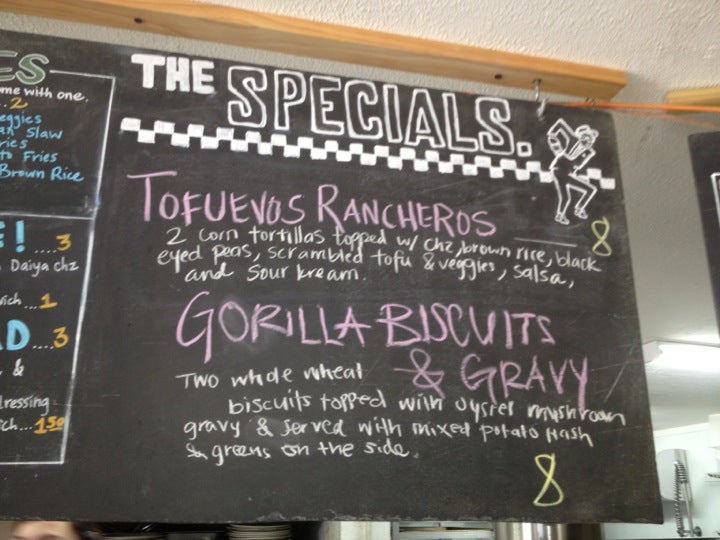 ES
me with one.
..2
eggies
an Slaw
ries
to Fries
Brown Rice
E!....3
Daiya chz
wich...1
D...3
&
ressing
ch...1.50
THE SPECIALS.
TOFUEVOS RANCHEROS
8
2 corn tortillas topped w/ chz, brown rice, black
eyed peas, scrambled tofu & veggies, salsa,
and sour kream.
GORILLA BISCUITS
& GRAVY
Two whole wheat
biscuits topped with oyster mushroom
gravy & served with mixed potato hash
& greens on the side.
8